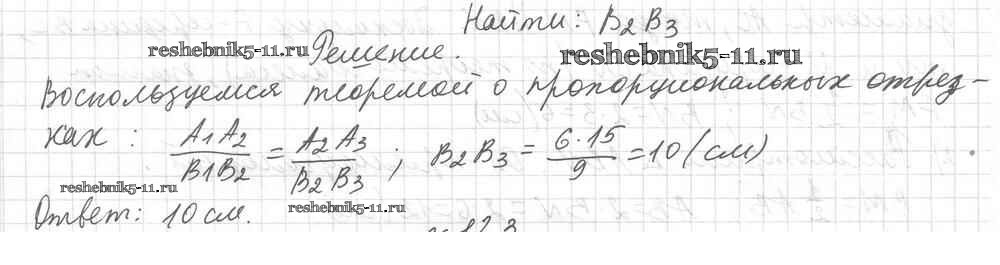 Найти: B₂B₃
reshebnik5-11.ru
Решение.
reshebnik5-11.ru
Воспользуемся теоремой о пропорциональных отрез-
ках: A₁A₂/B₁B₂ = A₂A₃/B₂B₃; B₂B₃ = 6·15/9 = 10 (см)
reshebnik5-11.ru
Ответ: 10 см.
reshebnik5-11.ru